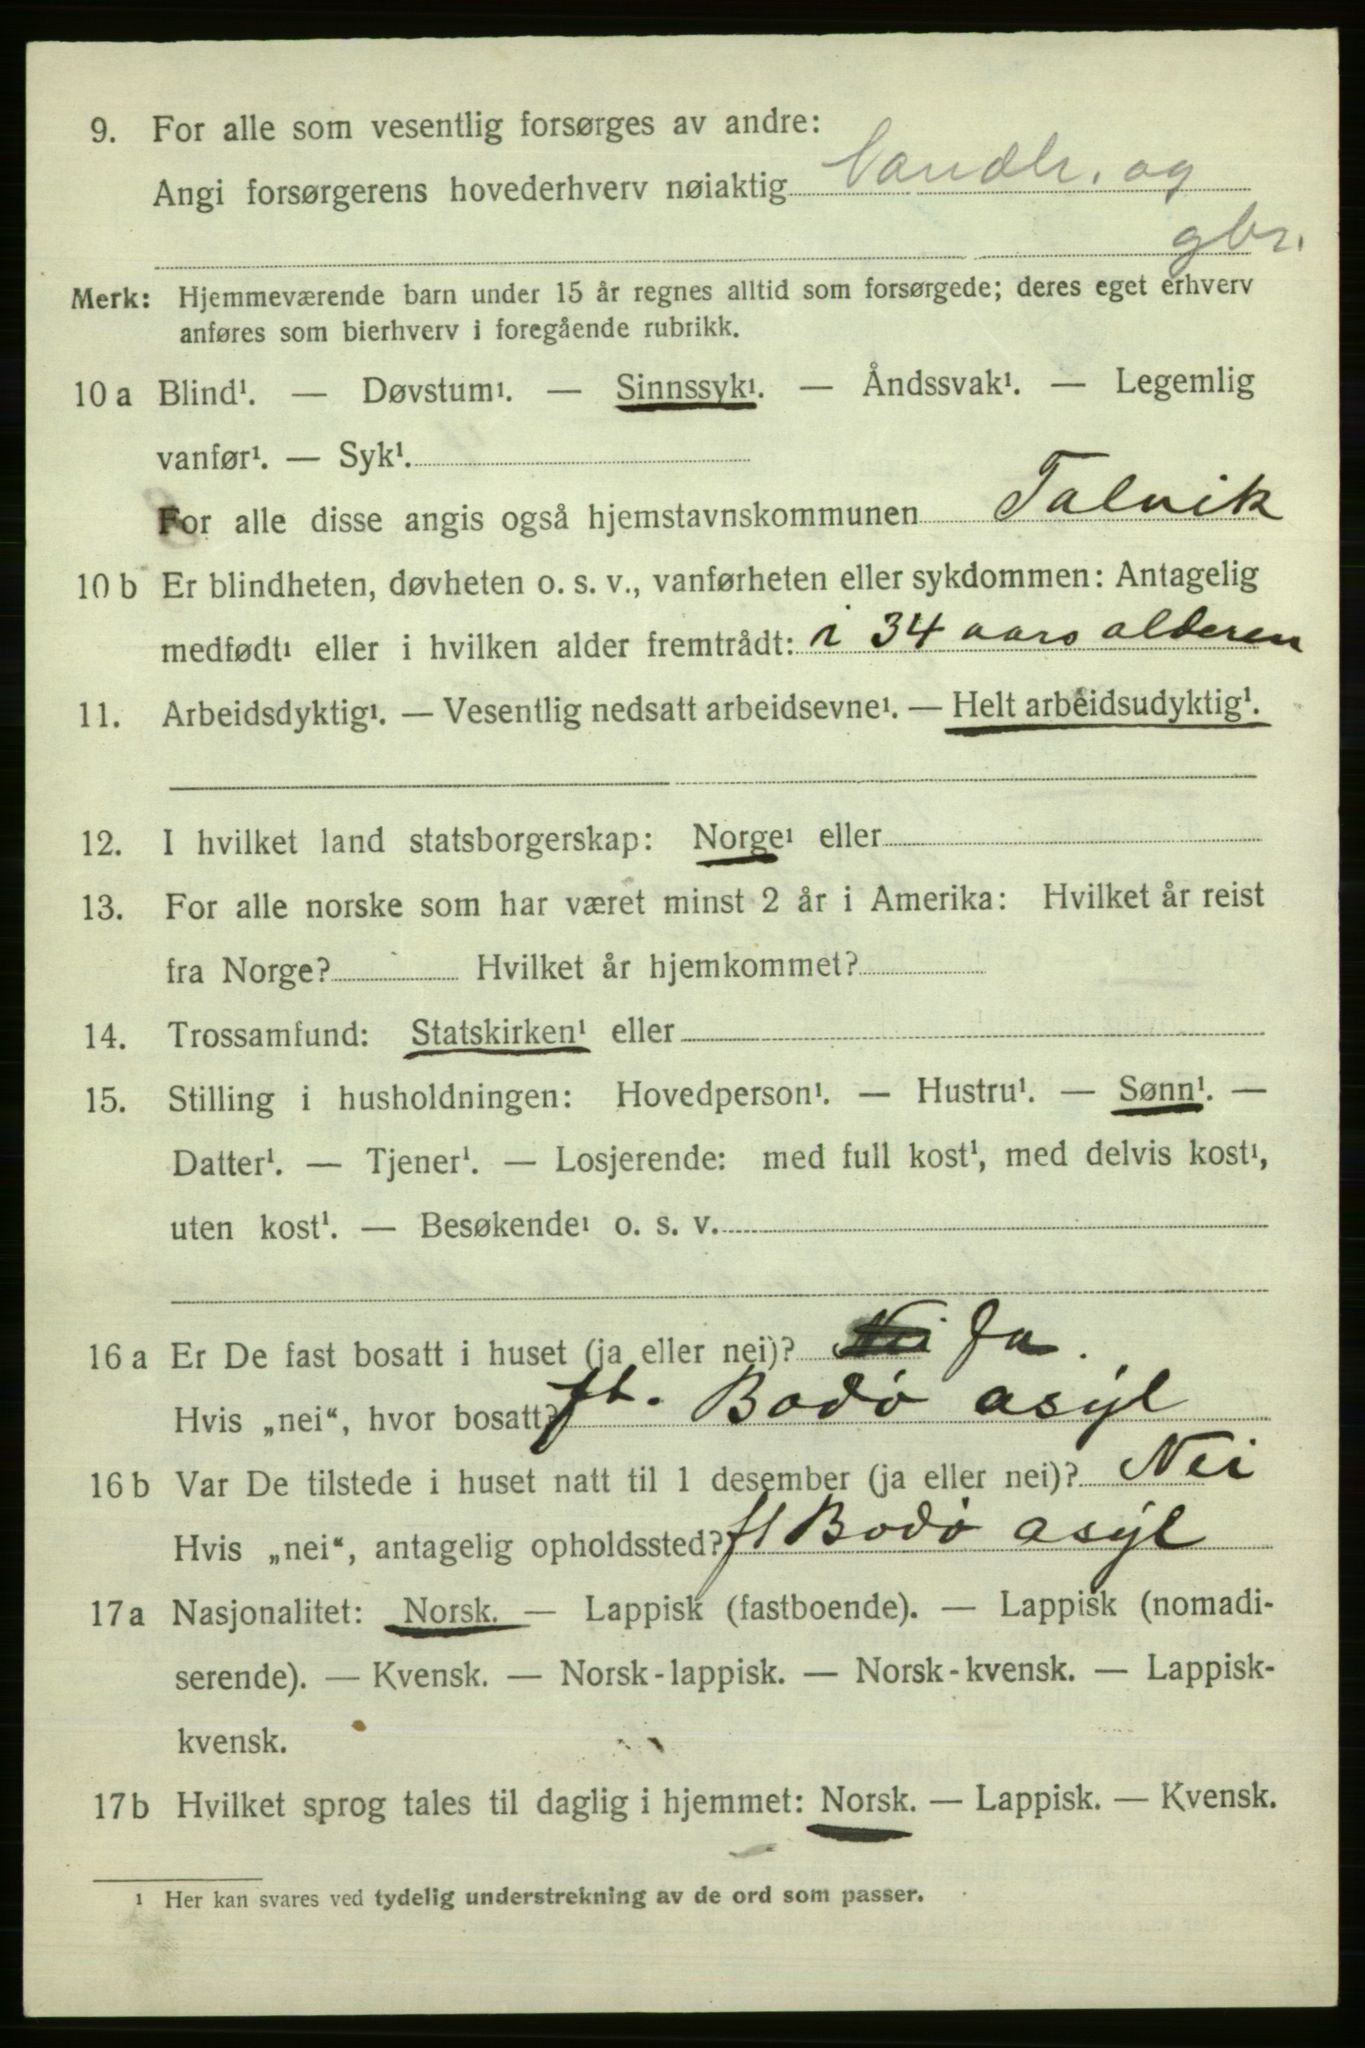 9. For alle som vesentlig forsørges av andre:
Angi forsørgerens hovederhverv nøiaktig Landh. og
gbr.
Merk: Hjemmeværende barn under 15 år regnes alltid som forsørgede; deres eget erhverv
anføres som bierhverv i foregående rubrikk.
10 a Blind¹. — Døvstum¹. — Sinnssyk¹. — Åndssvak¹. — Legemlig
vanfør¹. — Syk¹.
For alle disse angis også hjemstavnskommunen Talvik
10 b Er blindheten, døvheten o. s. v., vanførheten eller sykdommen: Antagelig
medfødt¹ eller i hvilken alder fremtrådt: i 34 aars alderen
11. Arbeidsdyktig¹. — Vesentlig nedsatt arbeidsevne¹. — Helt arbeidsudyktig¹.
12. I hvilket land statsborgerskap: Norge¹ eller
13. For alle norske som har været minst 2 år i Amerika: Hvilket år reist
fra Norge? Hvilket år hjemkommet?
14. Trossamfund: Statskirken¹ eller
15. Stilling i husholdningen: Hovedperson¹. — Hustru¹. — Sønn¹. —
Datter¹. — Tjener¹. — Losjerende: med full kost¹, med delvis kost¹,
uten kost¹. — Besøkende¹ o. s. v.
16 a Er De fast bosatt i huset (ja eller nei)? Nei Ja.
Hvis „nei“, hvor bosatt? ft. Bodø asyl
16 b Var De tilstede i huset natt til 1 desember (ja eller nei)? Nei
Hvis „nei“, antagelig opholdssted? ft Bodø asyl
17 a Nasjonalitet: Norsk. — Lappisk (fastboende). — Lappisk (nomadi-
serende). — Kvensk. — Norsk-lappisk. — Norsk-kvensk. — Lappisk-
kvensk.
17 b Hvilket sprog tales til daglig i hjemmet: Norsk. — Lappisk. — Kvensk.
¹ Her kan svares ved tydelig understrekning av de ord som passer.